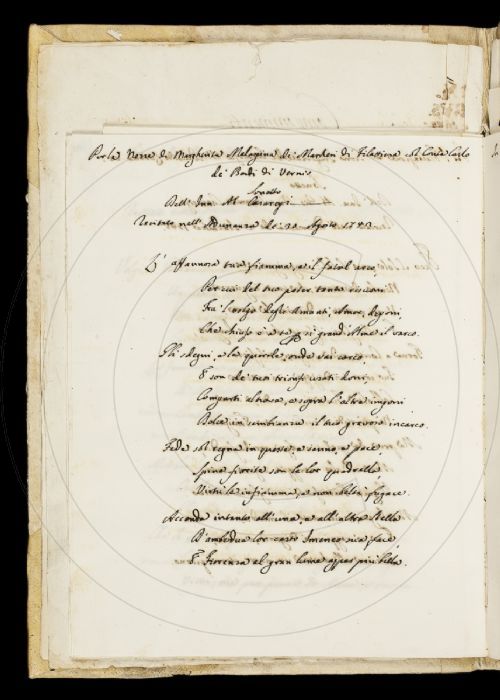 Per le Nozze di Margherita Malaspina de' Marchesi di Filattiera col Conte Carlo
de' Bardi di Vernio
Sonetto
Dell' Casaregi
Recitato nell' Adunanza de' 30 Agosto 1743
L' affannosa tua fiamma, e il fatal arco,
Per cui del tuo poter tanto
Fra 'l volgo degli Amanti, Amor, deponi,
Che chiuso è a te per sì grand' Alme il varco.
Gli sdegni, e le querele, onde vai carco
E son de' tuoi trionfi usati doni,
Comparti altrove, e sopra l' altre imponi
Dolce in sembianza il tuo gravoso incarco.
Fede sol regna in queste, e senno, e pace,
Spine fiorite son le lor quadrella,
Virtù le infiamma, e non beltà fugace.
Accenda intanto all' una, e all' altra Stella
D' ambedue lor casto Imeneo sua face,
E Fiorenza al gran lume appar più bella.